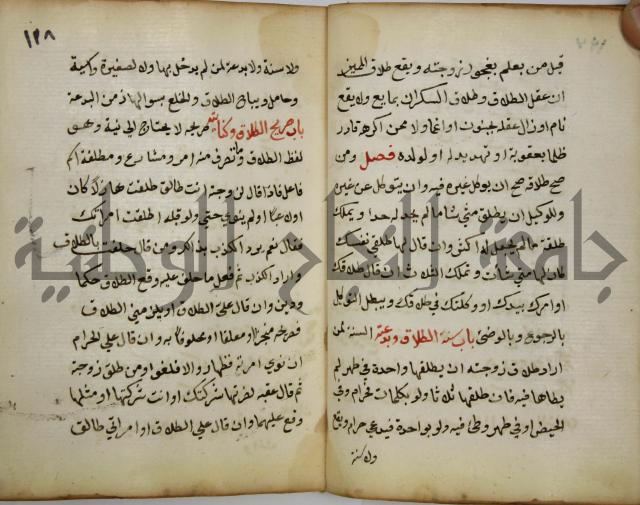 قبل من يعلم بغجى ان زوجته ويقع طلاق المميز
ان عقل الطلاق وطلاق السكران بمايع ولا يقع
نام او زال عقله بجنون او اغما ولا ممن اكرهه قادر
ظلما بعقوبة او تهديد له او لولده فصل ومن
صح طلاقه صح ان يوكل غيره فيه وان يتوكل عن غيره
وللوكيل ان يطلق متى شا ما لم يحد له حدا ويملك
طلقة ما لم يجعل له اكثر وان قال لها طلقي نفسك
كان لها متى شات وتملك الثلاث ان قال طلاقك
او امرك بيدك او وكلتك في طلاقك ويبطل التوكيل
بالرجوع وبالوطئ باب سنة الطلاق وبدعته السنة لمن
اراد طلاق زوجته ان يطلقها واحدة في طهر لم
يطاها فيه فان طلقها ثلاثا ولو بكلمات فحرام وفي
الحيض او في طهر وطئ فيه ولو بواحدة فبدعي حرام ويقع
ولا سنة
١٢٨
ولا سنة ولا بدعة لمن لم يدخل بها ولا لصغيرة وآيسة
وحامل ويباح الطلاق والخلع بسوالها زمن البدعة
باب صريح الطلاق وكنايته صريحه لا يحتاج الى نية وهو
لفظ الطلاق وما تصرف منه غير امر ومضارع ومطلقة اسم
فاعل فاذا قال لزوجته انت طالق طلقت هازلا كان
اولاعبا او لم ينو حتى ولو قيل له اطلقت امراتك
فقال نعم يريد الكذب بذلك ومن قال حلفت بالطلاق
واراد الكذب ثم فعل ما حلف عليه وقع الطلاق حكما
ودين وان قال علي الطلاق او يلزمني الطلاق
فصريحه منجزا او معلقا او محلوفا به وان قال علي الحرام
ان نوى امراته فظهار والا فلغو ومن طلق زوجة
ثم قال عقبه لضرتها شركتك او انت شركتها او مثلها
وقع عليهما وان قال علي الطلاق او امراتي طالق
جامعة النجاح الوطنية